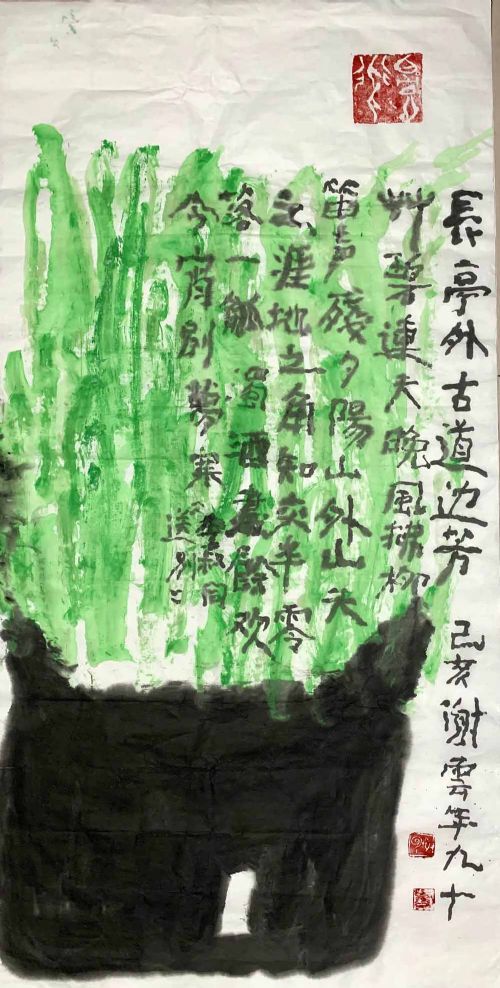 長亭外古道边芳
艸碧連天晚風拂柳
笛声殘夕陽山外山天
之涯地之角知交半零
落一觚濁酒盡餘欢
今宵别夢寒
李叔同
送别
己亥謝雲年九十